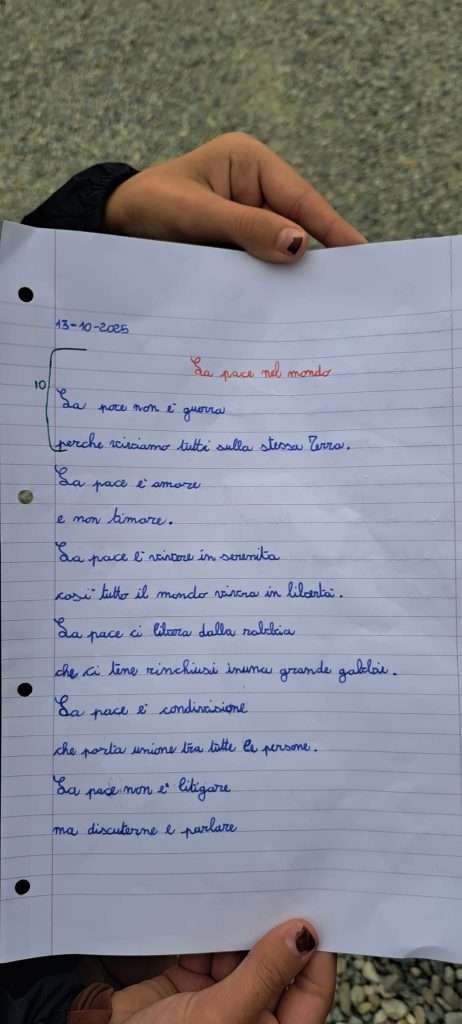 13-10-2025
10
La pace nel mondo
La pace non è guerra
perche viviamo tutti sulla stessa Terra.
La pace è amore
e non timore.
La pace è vivere in serenita
cosi tutto il mondo vivra in libertà.
La pace ci libera dalla rabbia
che ci tene rinchiusi inuna grande gabbia.
La pace è condivisione
che porta unione tra tutte le persone.
La pace non è litigare
ma discuterne e parlare